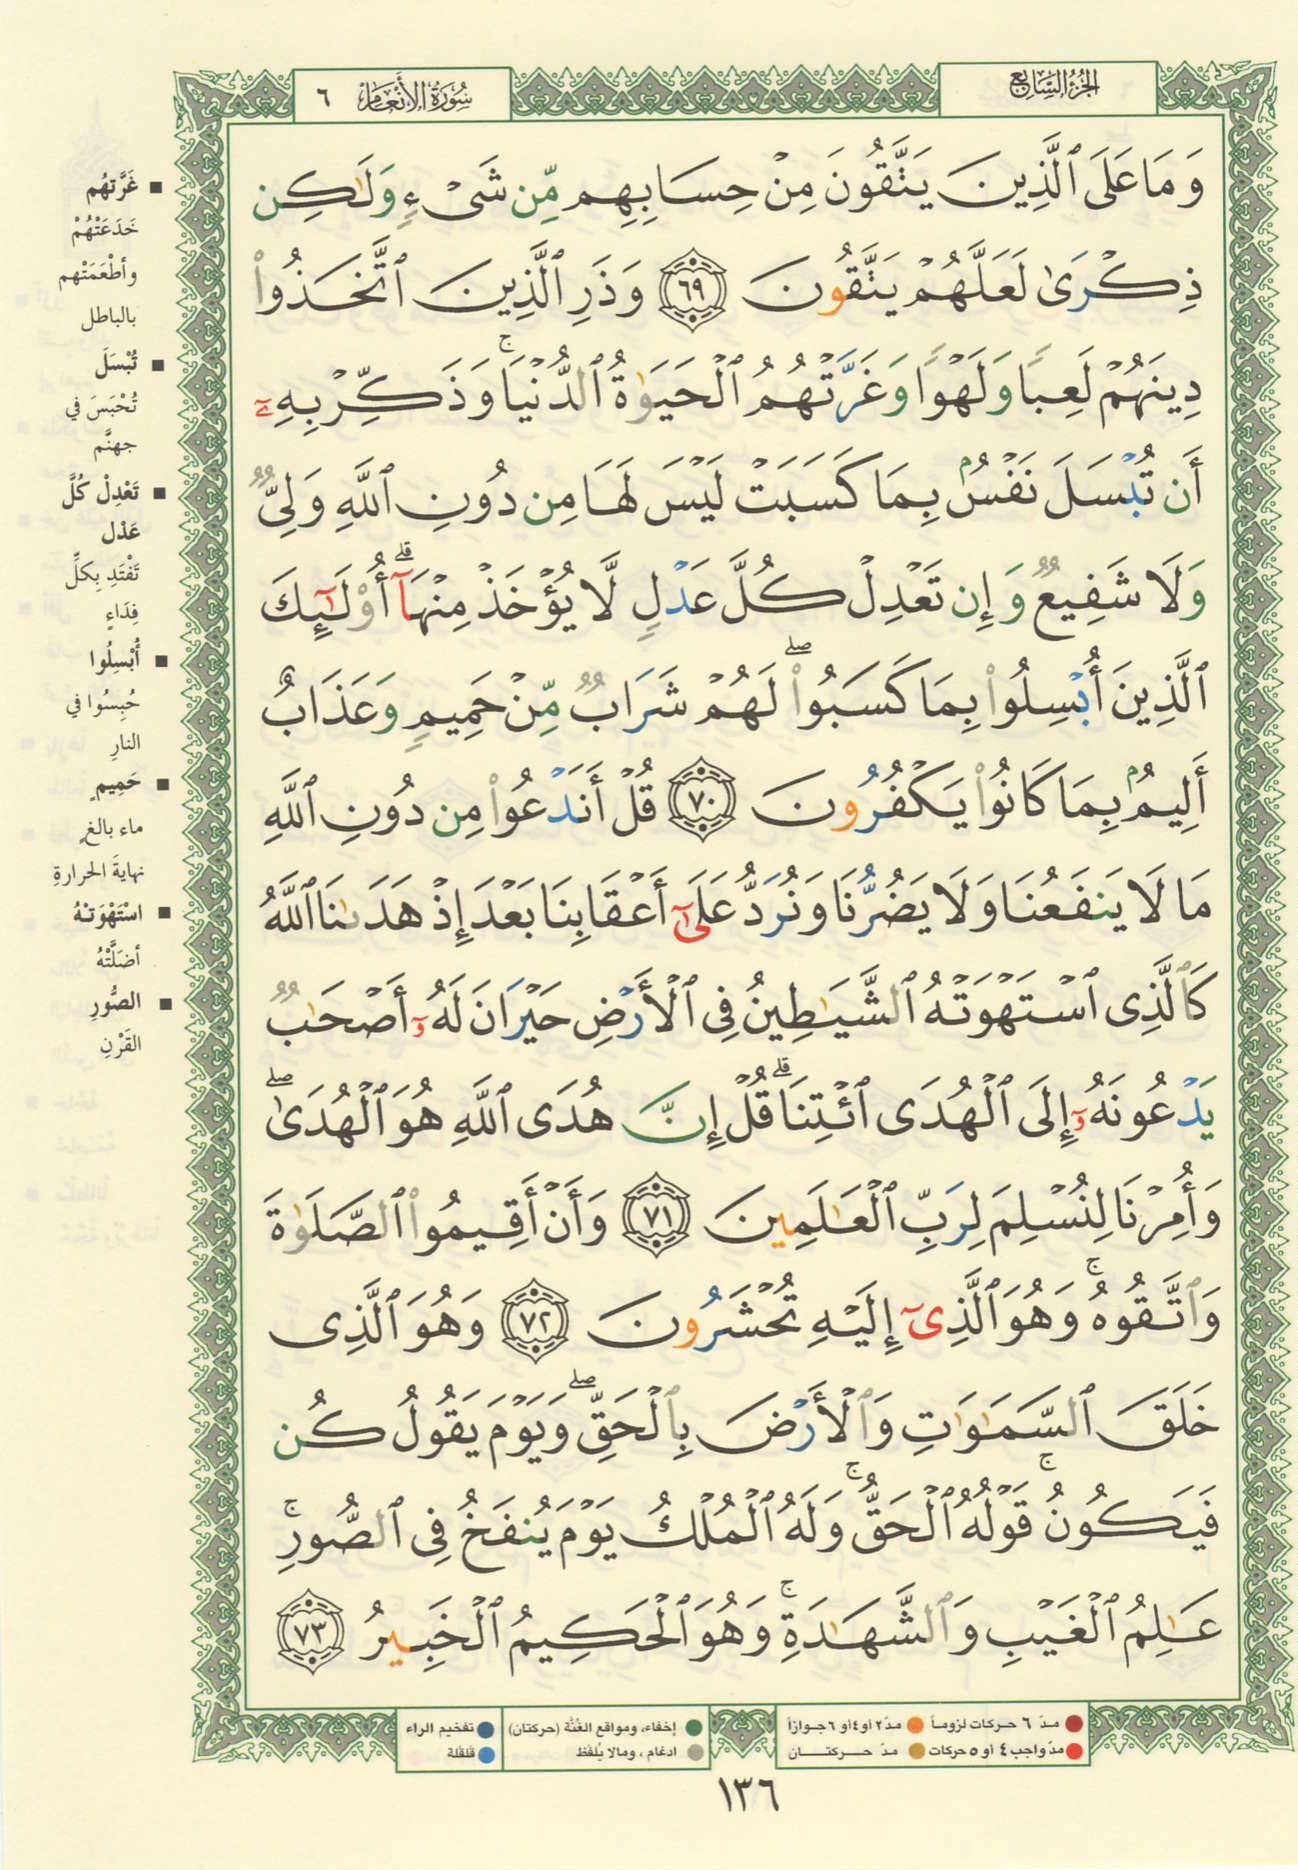 الجزء السابع
سورة الأنعام ٦
وَمَا عَلَى ٱلَّذِينَ يَتَّقُونَ مِنْ حِسَابِهِم مِّن شَىْءٍ وَلَٰكِن
ذِكْرَىٰ لَعَلَّهُمْ يَتَّقُونَ ﴿٦٩﴾ وَذَرِ ٱلَّذِينَ ٱتَّخَذُوا۟
دِينَهُمْ لَعِبًا وَلَهْوًا وَغَرَّتْهُمُ ٱلْحَيَوٰةُ ٱلدُّنْيَا ۚ وَذَكِّرْ بِهِۦٓ
أَن تُبْسَلَ نَفْسٌۢ بِمَا كَسَبَتْ لَيْسَ لَهَا مِن دُونِ ٱللَّهِ وَلِىٌّ
وَلَا شَفِيعٌ وَإِن تَعْدِلْ كُلَّ عَدْلٍ لَّا يُؤْخَذْ مِنْهَآ ۗ أُو۟لَٰٓئِكَ
ٱلَّذِينَ أُبْسِلُوا۟ بِمَا كَسَبُوا۟ ۖ لَهُمْ شَرَابٌ مِّنْ حَمِيمٍ وَعَذَابٌ
أَلِيمٌۢ بِمَا كَانُوا۟ يَكْفُرُونَ ﴿٧٠﴾ قُلْ أَنَدْعُوا۟ مِن دُونِ ٱللَّهِ
مَا لَا يَنفَعُنَا وَلَا يَضُرُّنَا وَنُرَدُّ عَلَىٰٓ أَعْقَابِنَا بَعْدَ إِذْ هَدَىٰنَا ٱللَّهُ
كَٱلَّذِى ٱسْتَهْوَتْهُ ٱلشَّيَٰطِينُ فِى ٱلْأَرْضِ حَيْرَانَ لَهُۥٓ أَصْحَٰبٌ
يَدْعُونَهُۥٓ إِلَى ٱلْهُدَى ٱئْتِنَا ۗ قُلْ إِنَّ هُدَى ٱللَّهِ هُوَ ٱلْهُدَىٰ ۖ
وَأُمِرْنَا لِنُسْلِمَ لِرَبِّ ٱلْعَٰلَمِينَ ﴿٧١﴾ وَأَنْ أَقِيمُوا۟ ٱلصَّلَوٰةَ
وَٱتَّقُوهُ ۚ وَهُوَ ٱلَّذِىٓ إِلَيْهِ تُحْشَرُونَ ﴿٧٢﴾ وَهُوَ ٱلَّذِى
خَلَقَ ٱلسَّمَٰوَٰتِ وَٱلْأَرْضَ بِٱلْحَقِّ ۖ وَيَوْمَ يَقُولُ كُن
فَيَكُونُ ۚ قَوْلُهُ ٱلْحَقُّ ۚ وَلَهُ ٱلْمُلْكُ يَوْمَ يُنفَخُ فِى ٱلصُّورِ ۚ
عَٰلِمُ ٱلْغَيْبِ وَٱلشَّهَٰدَةِ ۚ وَهُوَ ٱلْحَكِيمُ ٱلْخَبِيرُ ﴿٧٣﴾
■ غَرَّتهُم
خَدَعَتْهُمْ
وأطْعَمَتْهم
بالباطل
■ تُبْسَلَ
تُحْبَسَ في
جهنَّم
■ تَعْدِلْ كُلَّ
عَدْل
تَفْتَدِ بِكلِّ
فِدَاءٍ
■ أُبْسِلُوا
حُبِسُوا في
النارِ
■ حَمِيمٍ
ماء بالغ
نهايةَ الحرارةِ
■ اسْتَهْوَتْهُ
أضَلَّتْهُ
■ الصُّورِ
القَرْنِ
مدّ ٦ حركات لزوماً ● مدّ ٢ أو ٤ أو ٦ جوازاً
مدّ واجب ٤ أو ٥ حركات ● مدّ حركتان
إخفاء، ومواقع الغُنَّة (حركتان) ● تفخيم الراء
ادغام، ومالا يُلفَظ ● قلقلة
١٣٦